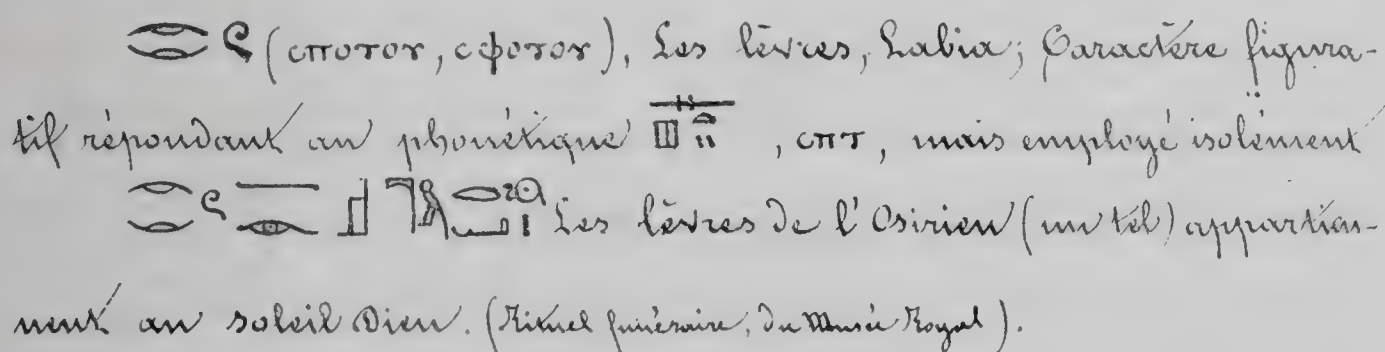 (ⲥⲡⲟⲧⲟⲩ, ⲥⲫⲟⲧⲟⲩ), Les lèvres, Labia; Caractère figura-
tif répondant au phonétique , ⲥⲡⲧ, mais employé isolément
Les lèvres de l'Osirien (un tel) appartien-
nent au soleil Dieu. (Rituel funéraire, du Musée Royal).